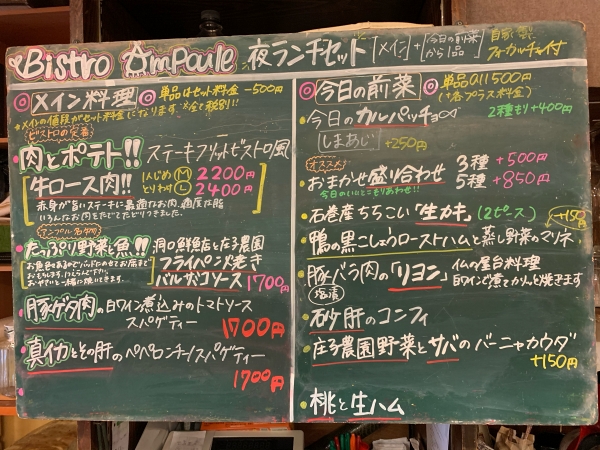 Bistro Ampoule 夜ランチセット 「メイン」+「今日の前菜から1品」 自家製フォカッチャ付
◎メイン料理◎ 単品はセット料金-500円
※メインの値段がセット料金になります ※全て税別!!
ビストロの定番
・肉とポテト!! ステーキフリットビストロ風
牛ロース肉!! 人じめ Ⓜ 2200円
とりわけ Ⓛ 2400円
赤身が旨いステーキに最適なお肉。適度な脂
いろんなお肉をたべてたどりつきました。
アンプル名物
・たっぷり野菜と魚!! 洞の鮮魚店と庄子農園
フライパン焼き
バルサミコソース 1700円
・豚ゲタ肉の白ワイン煮込みのトマトソース
スパゲティー 1700円
・真イカとその肝のペペロンチーノスパゲティー
1700円
◎今日の前菜◎ 単品all500円
(+各プラス料金)
・今日のカルパッチョ 2種もり+400円
しまあじ +250円
オススメ!
・おまかせ盛り合わせ 3種+500円
今日のいいとこもりあわせ!! 5種+850円
・石巻産ちぢこい「生カキ」(2ピース) +150円
・鴨の黒こしょうローストハムと蒸し野菜のマリネ
・豚バラ肉の「リヨン」 仏の屋台料理
塩漬 白ワインで煮てかりっと焼きます
・砂肝のコンフィ
・庄子農園野菜とサバのバーニャカウダ
+150円
・桃と生ハム